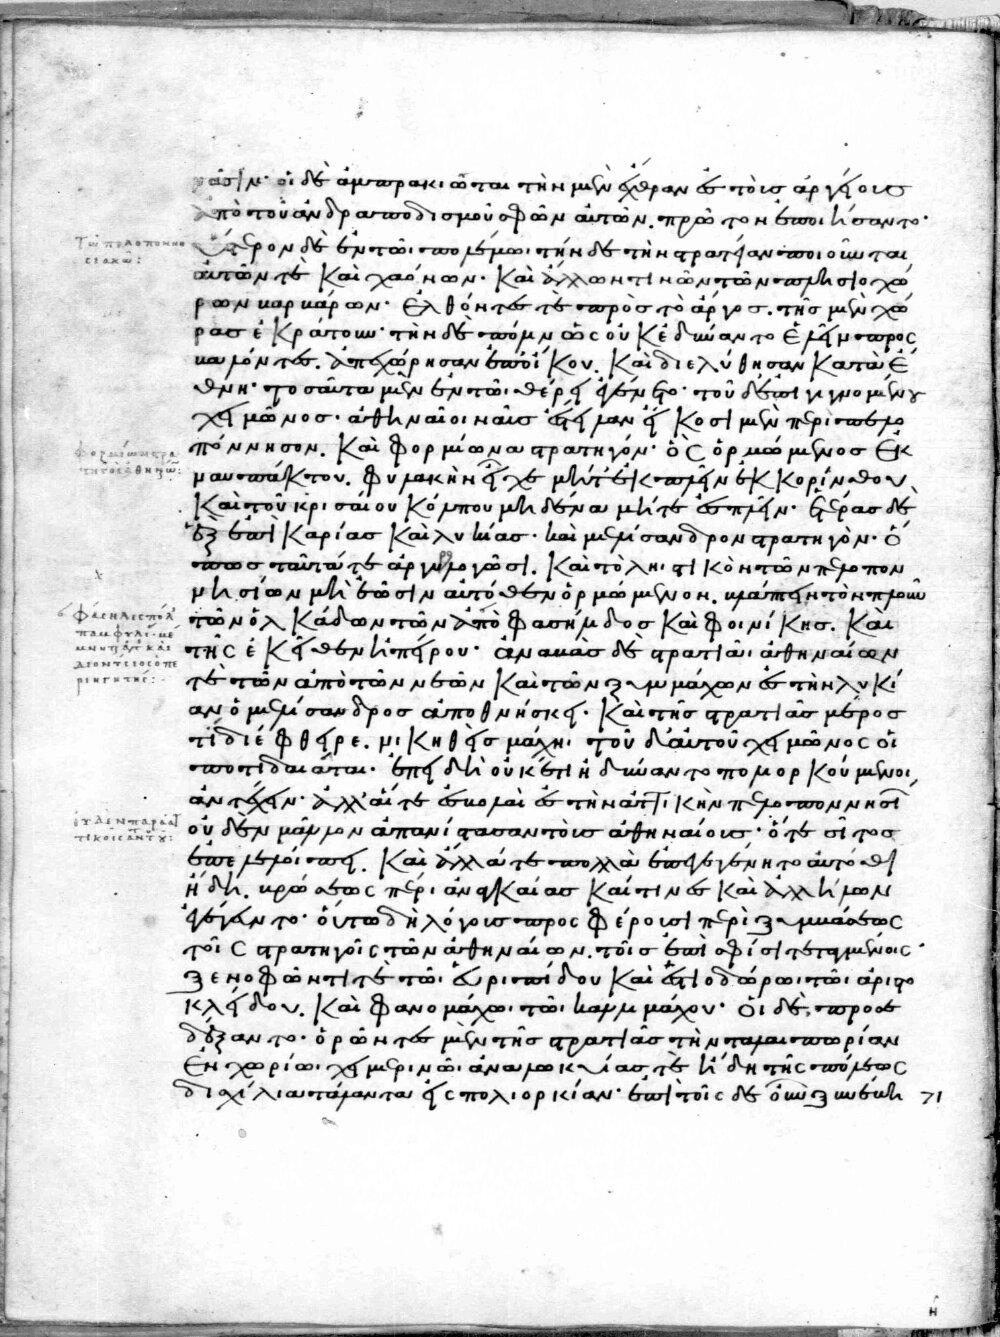 κάσιν· οἱ δὲ ἀμπρακιῶται τὴν μὲν ἔχθραν ἐς τοὺς ἀργείους
ἀπὸ τοῦ ἀνδραποδισμοῦ σφῶν αὐτῶν. πρῶτον ἐποιήσαντο·
ὕστερον δὲ ἐν τῶι πολέμωι τήνδε τὴν στρατείαν ποιοῦνται
ἑαυτῶν τὲ καὶ χαόνων· καὶ ἄλλων τινῶν τῶν πλησιοχώ
ρων βαρβάρων· ἐλθόντες τὲ πρὸς τὸ ἄργος. τῆς μὲν χώ
ρας ἐκράτουν· τὴν δὲ πόλιν ὡς οὐκ ἐδύναντο ἑλεῖν προς
βαλόντες. ἀπεχώρησαν ἐπ' οἴκου. καὶ διελύθησαν κατὰ ἔ
θνη· τοσαῦτα μὲν ἐν τῶι θέρει ἐγένετο· τοῦ δ' ἐπιγιγνομένου
χειμῶνος· ἀθηναῖοι ναῦς ἔστειλαν εἴκοσι μὲν περὶ πελο
πόννησον. καὶ φορμίωνα στρατηγόν· ὃς ὁρμώμενος ἐκ
ναυπάκτου. φυλακὴν εἶχε μήτ' ἐκπλεῖν ἐκ κορίνθου
καὶ τοῦ κρισαίου κόλπου μηδένα μήτε ἐσπλεῖν· ἑτέρας δὲ
ἓξ ἐπὶ καρίας καὶ λυκίας· καὶ μελίσανδρον στρατηγὸν· ὅ
πως ταῦτά τε ἀργυρολογῶσι. καὶ τὸ ληιστικὸν τῶν πελοπον
νησίων μὴ ἐῶσιν αὐτόθεν ὁρμώμενον. βλάπτειν τὸν πλοῦν
τῶν ὁλκάδων τῶν ἀπὸ φασήλιδος καὶ φοινίκης. καὶ
τῆς ἐκεῖθεν ἠπείρου· ἀναβὰς δὲ στρατιᾶι ἀθηναίων
τὲ τῶν ἀπὸ τῶν νεῶν καὶ τῶν ξυμμάχων ἐς τὴν λυκί
αν ὁ μελίσανδρος ἀποθνήσκει· καὶ τῆς στρατιᾶς μέρος
τὶ διέφθειρε. νικηθεὶς μάχηι· τοῦ δ' αὐτοῦ χειμῶνος οἱ
ποτιδαιᾶται· ἐπειδὴ οὐκέτι ἠδύναντο πολιορκούμενοι
ἀντέχειν· ἀλλ' αἵ τε ἐσβολαὶ ἐς τὴν ἀττικὴν πελοποννησί
οὐδὲν μᾶλλον ἀπανίστασαν τοὺς ἀθηναίους· ὅ τε σῖτος
ἐπελελοίπει. καὶ ἄλλα τε πολλὰ ἐπεγεγένητο αὐτόθι
ἤδη. βρώσεως πέρι ἀναγκαίας καί τινες καὶ ἀλλήλων
ἐγέγευντο· οὕτω δὴ λόγους προσφέρουσι περὶ ξυμβάσεως
τοῖς στρατηγοῖς τῶν ἀθηναίων. τοῖς ἐπὶ σφίσι τεταγμένοις·
ξενοφῶντι τε τῶι εὐριπίδου καὶ ἑστιοδώρωι τῶι ἀριστο
κλείδου. καὶ φανομάχωι τῶι καλλιμάχου· οἱ δὲ προσε
δέξαντο· ὁρῶντες μὲν τῆς στρατιᾶς τὴν ταλαιπωρίαν
ἐν χωρίωι χειμερινῶι· ἀναλωκυίας τὲ ἤδη τῆς πόλεως
δισχίλια τάλαντα ἐς πολιορκίαν· ἐπὶ τοῖς δὲ οὖν ξυνέβη
71
τῶ πελοποννη
σιακῶ:
φορμίων στρα
τηγὸς ἀθηναίων:
φάσηλις πόλ
παμφυλί·
διονύσιος ὁ πε
ριηγητής:
η